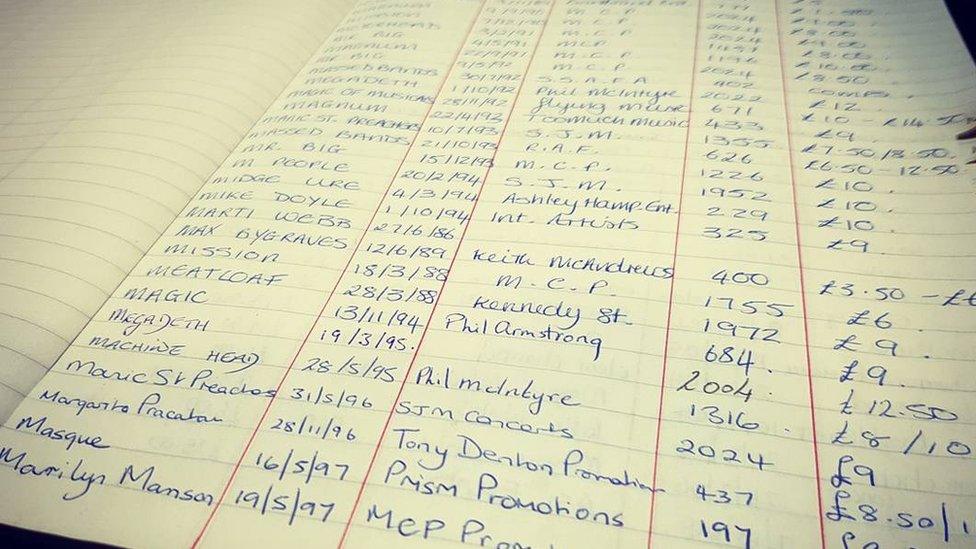 MISSION
MOTORHEADS 3/2/91 M.C.P 2024 £9.00
MR BIG 4/5/91 MCP 1451 £8.00
MAGNUM 22/9/91 M.C.P 1196 £10.00
MR BIG 9/5/92 M.C.P. 2024 £8.50
MASSED BANDS 30/7/92 S.S.A.F.A 402 comps.
MEGADETH 1/10/92 Phil McIntyre 2022 £12
MAGIC OF MUSICALS 28/11/92 Flying Music 671 £10 - £14.
MAGNUM 22/4/93 Toomuch Music 433 £9
MANIC ST. PREACHER 10/7/93 S.J.M. 1355 £7.50/8.50.
MASSED BANDS 21/10/93 R.A.F. 626 £6.50 - 12.50
MR. BIG 15/12/93 M.C.P. 1226 £10.
M PEOPLE 20/2/94 S.J.M. 1952 £10.
MIDGE URE 4/3/94 Ashley Hamp. Ent. 229 £10.
MIKE DOYLE 1/10/94 Int. Artists 325 £9.
MARTI WEBB 27/6/86
MAX BYGRAVES 12/6/89 Keith McAndrews 400 £3.50 - £6
MISSION 18/3/88 M.C.P. 1755 £6.
MEATLOAF 28/3/88 Kennedy St. 1972 £9.
MAGIC 13/11/94 Phil Armstrong 684. £9.
MEGADETH 19/3/95. 2004. £12.50
MACHINE HEAD 28/5/95 Phil McIntyre 1316. £8/10
Manic St Preachos 31/5/96 SJM concerts 2024 £9
Margarita Pracatan 28/11/96 Tony Denton Promotion 437 £8.50/1
Masque 16/5/97 Prism Promotions 197
Marilyn Manson 19/5/97 MCP Prom